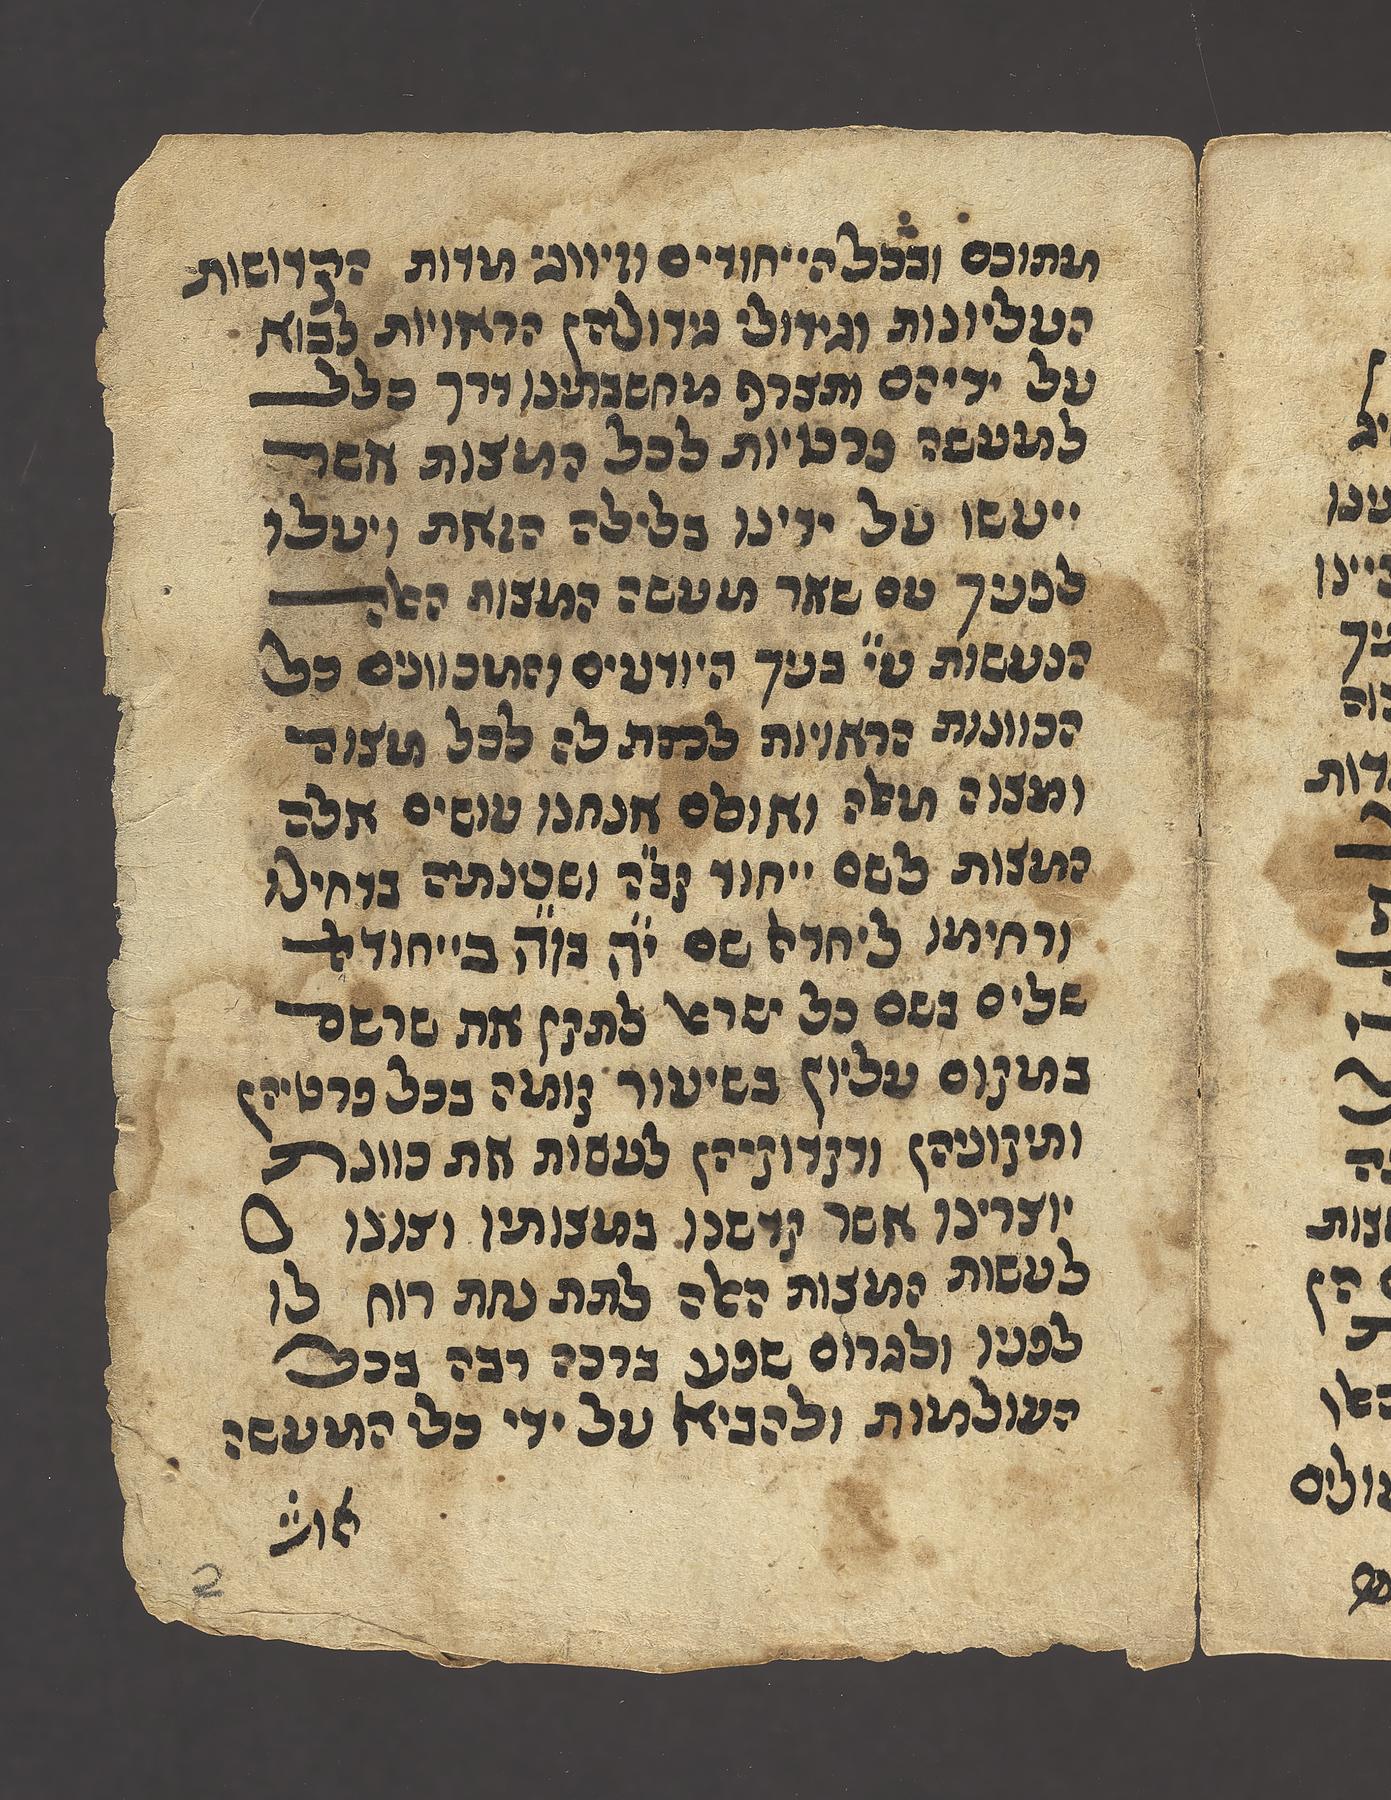 מתוכם ובכל הייחודים וזיווגי מדות הקדושות
העליונות וגידולי גידולהן הראויות לבוא
על ידיהם ותצרף מחשבתינו דרך כלל
למעשה פרטיות לכל המצות אשר
ייעשו על ידינו בלילה הזאת ויעלו
לפניך עם שאר מעשה המצות האלה
הנעשות ע״י בניך היודעים והמכוונים כל
הכוונות הראויות לכוון לה לכל מצוה
ומצוה מאלה ואולם אנחנו עושים אלה
המצות לשם ייחוד קב״ה ושכינתיה בדחילו
ורחימו ליחדא שם י״ה בו״ה בייחודא
שלים בשם כל ישראל לתקן את שרשם
במקום עליון בשיעור קומה בכל פרטיהן
ותיקוניהן ודקדוקיהן לעשות את כוונת
יוצרינו אשר קדשנו במצותיו וצונו
לעשות המצות האלה לתת נחת רוח לו
לפניו ולגרום שפע ברכה רבה בכל
העולמות ולהביא על ידי כלי המעשה
2